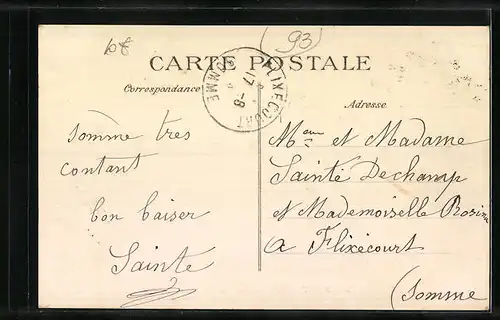 10f
93
CARTE POSTALE
FLIXECOURT
17 -8
SOMME
Correspondance
Adresse
somme tres
contant
bon baiser
Sainte
Mr et Madame
Sainte Dechamp
et Mademoiselle Rosina
a Flixécourt
(Somme